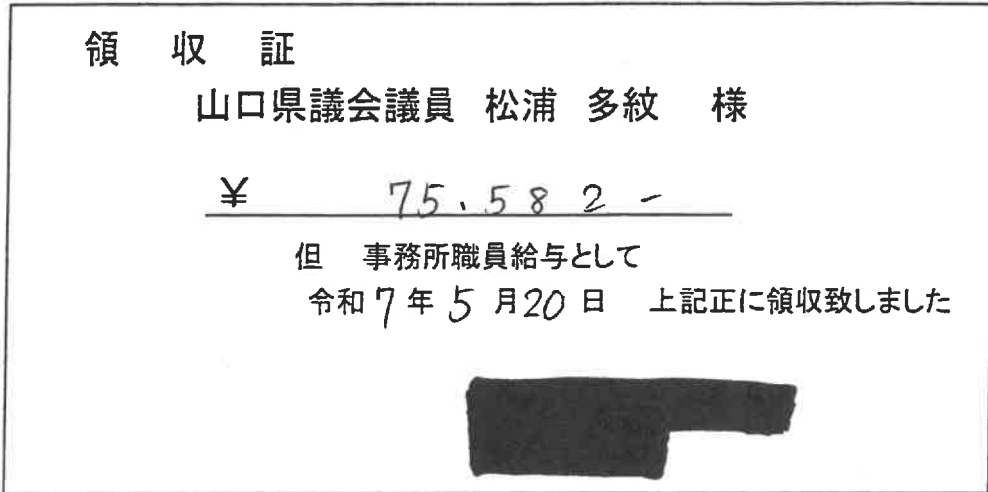 領 収 証
山口県議会議員 松浦 多紋 様
¥ 75.582-
但 事務所職員給与として
令和7年5月20日 上記正に領収致しました